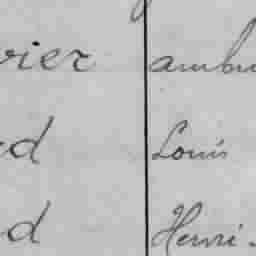 vier ambr
d Louis
d Henri